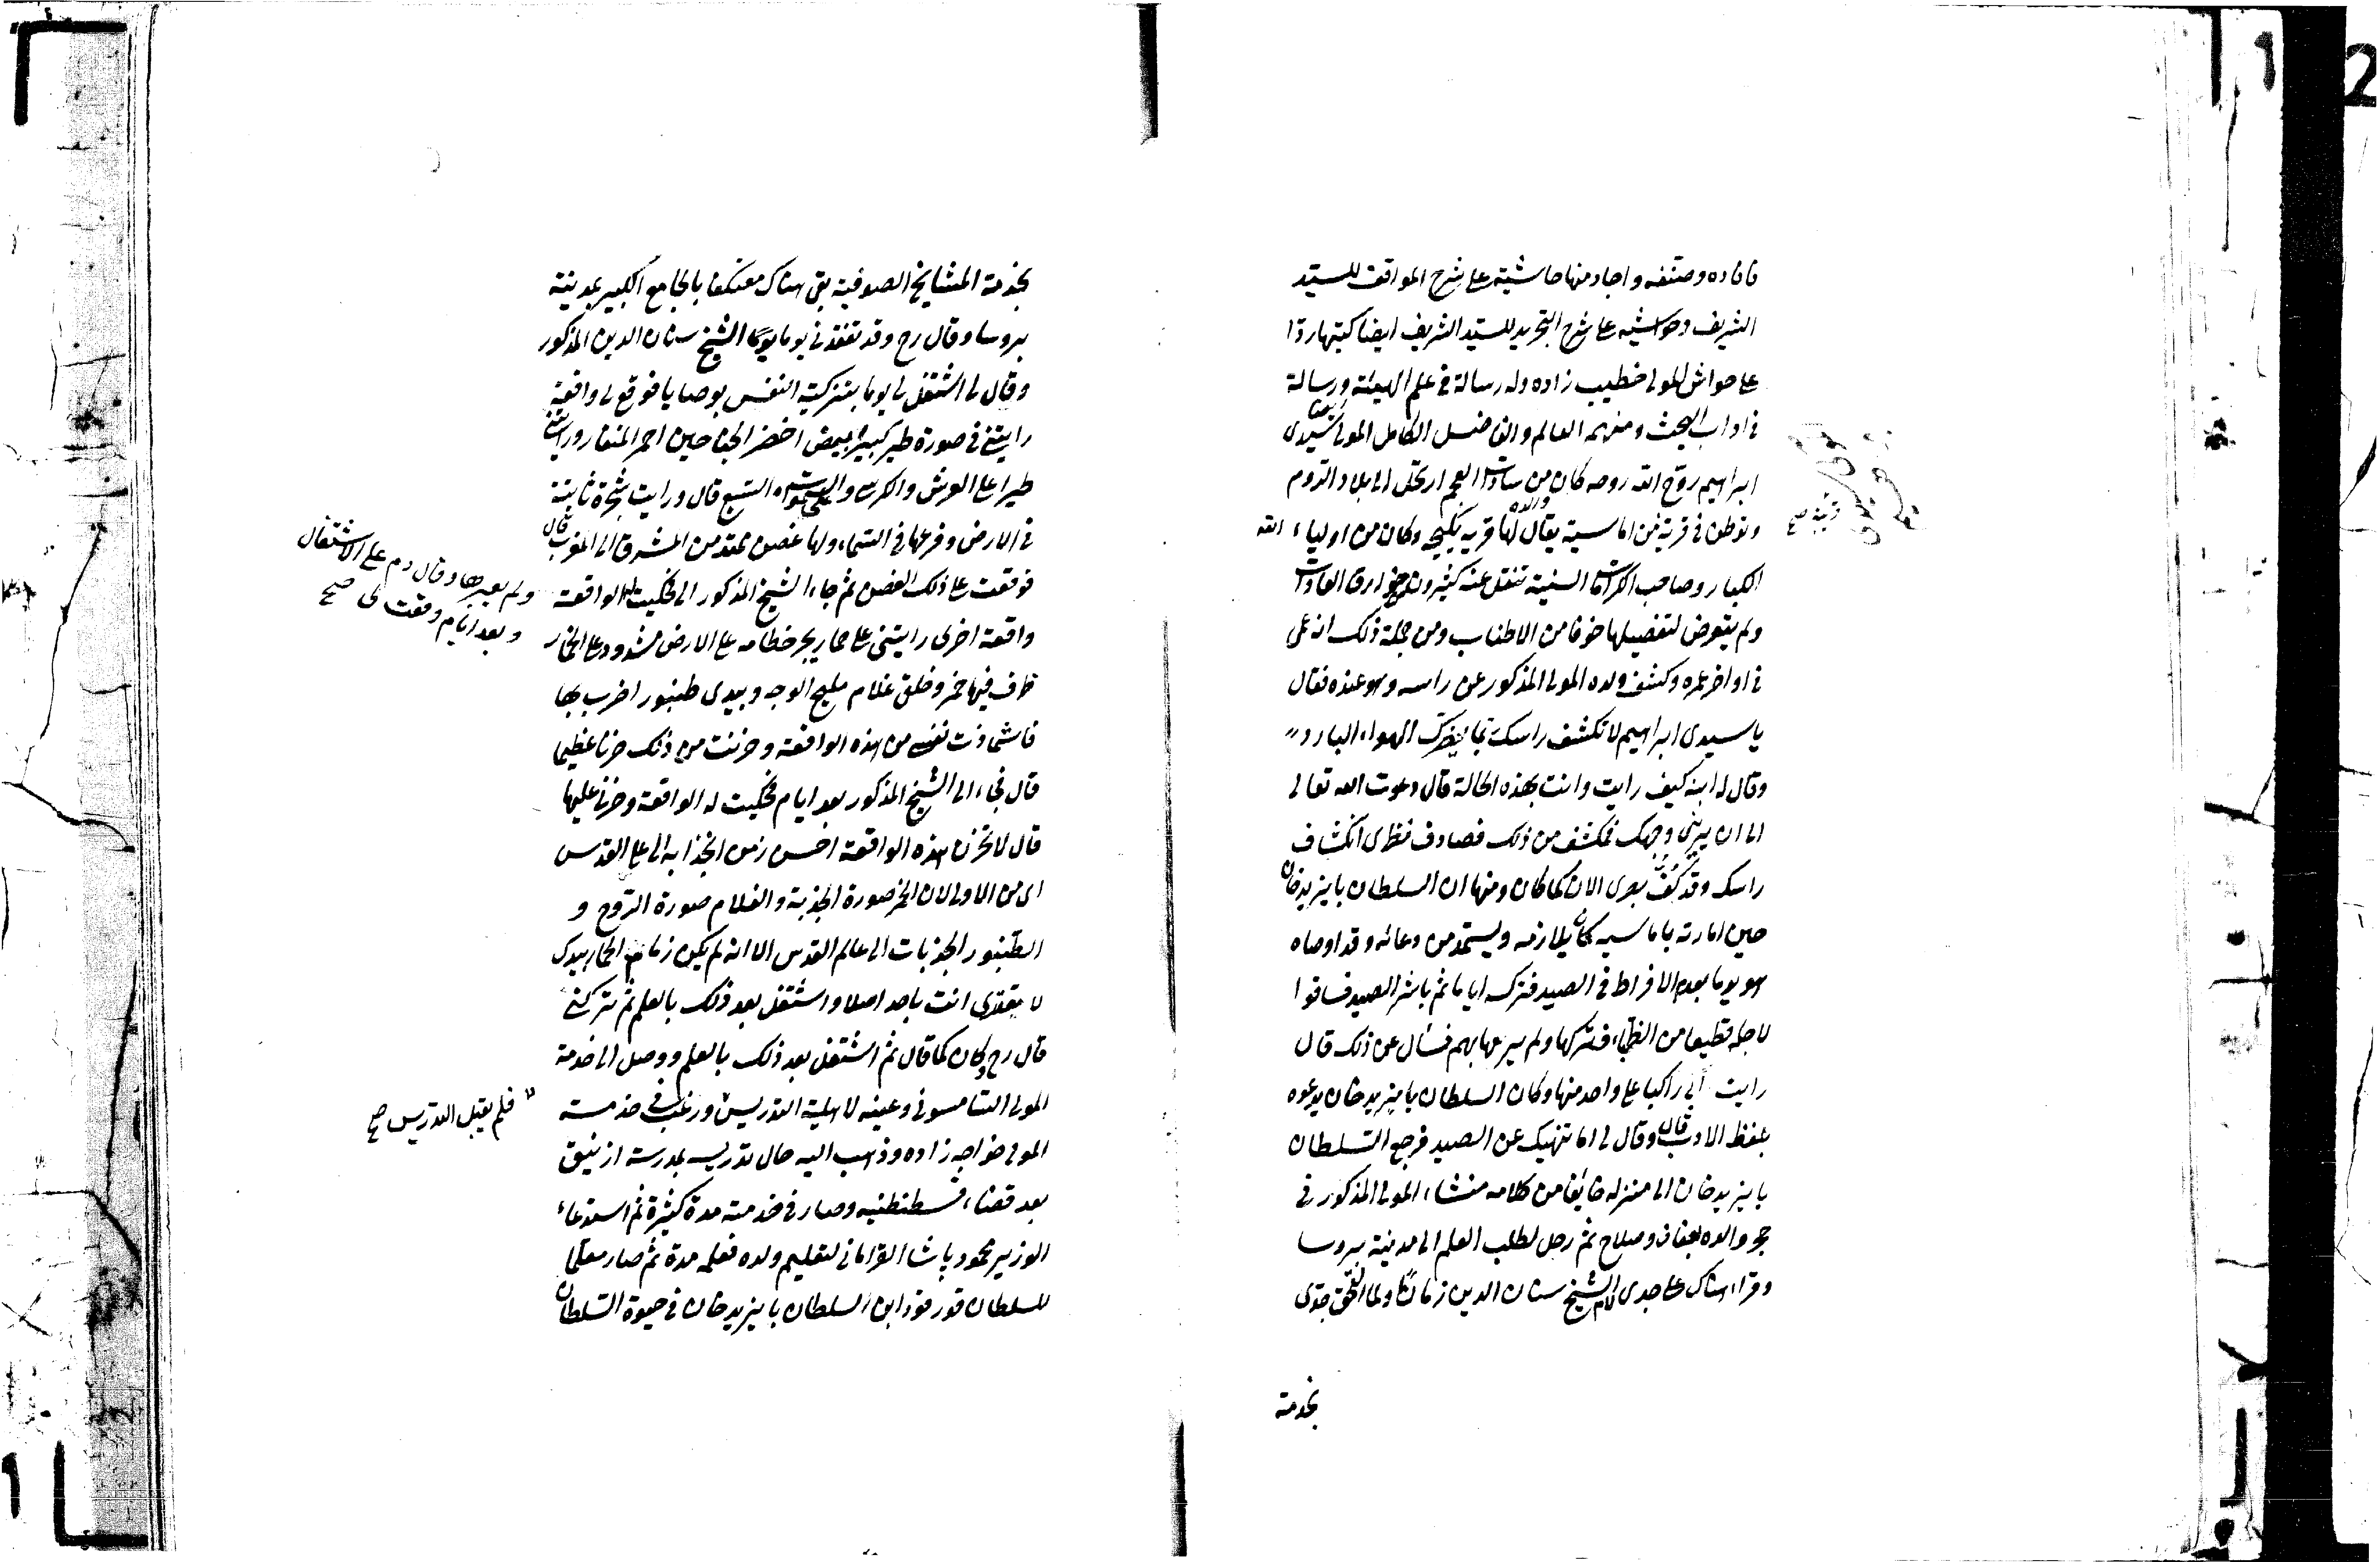 فافاده وصنفه واجاد منها حاشية على شرح المواقف للسيد
الشريف وحواشيه على شرح التجريد للسيد الشريف ايضا كتبها ردا
على حواش المولى خطيب زاده وله رسالة في علم الهيئة ورسالة
في اداب البحث ومنهم العالم والفاضل الكامل المولى سيدى
ابراهيم روح الله روحه كان والده من سادات العجم ارتحل الى بلاد الروم
وتوطن في قرية من اماسية يقال لها قريه يكيجه وكان من اولياء الله
الكبار وصاحب الكرامات السنية تنقل عنه كثير من خوارق العادات
ولم يتعرض لتفصيلها خوفا من الاطناب ومن جملة ذلك انه عمى
في اواخر عمره وكشف ولده المولى المذكور عن راسه وهو عنده فقال
يا سيدى ابراهيم لا تكشف راسك ربما يضرك الهواء البارد
وقال له ابنه كيف رايت وانت بهذه الحالة قال دعوت الله تعالى
الى ان يرينى وجهك فكشف من ذلك فصادف نظرى انكشاف
راسك وقد كف بصرى الان كما كان ومنها ان السلطان بايزيد خان
حين امارته باماسيه كان يلازمه ويستمد من دعائه وقد اوصاه
هو يوما بعدم الافراط في الصيد فتركه اياما ثم باشر الصيد فساقوا
لاجله قطيعا من الظباء فتركها ولم يرمها بهم فسال عن ذلك قال
رايت ابى راكبا على واحد منها وكان السلطان بايزيد خان يدعوه
بلفظ الاب قال وقال لى اما نهيتك عن الصيد فرجع السلطان
بايزيد خان الى منزله خائفا من كلامه منشاء المولى المذكور في
حجر والده بعفاف وصلاح ثم رحل لطلب العلم الى مدينة بروسا
وقراء هناك على جدى لام الشيخ سنان الدين زمانا ولما التحق جدى
بخدمة
بخدمة المشايخ الصوفية بقى هناك معتكفا بالجامع الكبير بمدينة
بروسا وقال رح وقد تفقدنى يوما الشيخ سنان الدين المذكور
وقال لى اشتغل يوما بتزكية النفس بوصايا فوقع لى واقعة
رايتنى في صورة طير كبير ابيض اخضر الجناحين احمر المنقار ورايتنى
طيرا على العرش والكرسى والسموات السبع قال ورايت شجرة ثابتة
في الارض وفرعها في السماء ولها غصن ممتد من المشرق الى المغرب قال
فوقعت على ذلك الغصن ثم جاء الشيخ المذكور الى فحكيت له الواقعة
ولم يعبرها وقال دم على الاشتغال
وبعد ايام وقعت لى صح
واقعة اخرى رايتنى على حمار يجر خطامه على الارض مشدود على الحمار
ظرف فيها خمر وخلق غلام مليح الوجه وبيدى طنبور اضرب بها
فاشمازت نفسى من هذه الواقعة وحزنت من ذلك حزنا عظيما
قال فجاء الى الشيخ المذكور بعد ايام فحكيت له الواقعة وحزنى عليها
قال لا تحزن هذه الواقعة احسن زمن انجذابه الى عالم القدس
اى من الاولى لان الخمر صورة الجذبة والغلام صورة الروح و
الطنبور الجذبات الى عالم القدس الا انه لم يكن زمام الحمار بيدك
لا يقتدى انت باحد اصلا واشتغل بعد ذلك بالعلم ثم تركنى
قال رح وكان كما قال ثم اشتغل بعد ذلك بالعلم ووصل الى خدمة
المولى السامسونى وعينه لاهلية التدريس ورغب في خدمة
فلم يقبل التدريس صح
المولى خواجه زاده وذهب اليه حال تدريسه بمدرسة ازنيق
بعد قضاء قسطنطنيه وصار في خدمته مدة كثيرة ثم استدعاء
الوزير محمود باشا القرامانى لتعليم ولده فعلمه مدة ثم صار معلما
للسلطان قورقود ابن السلطان بايزيد خان في حيوة السلطان